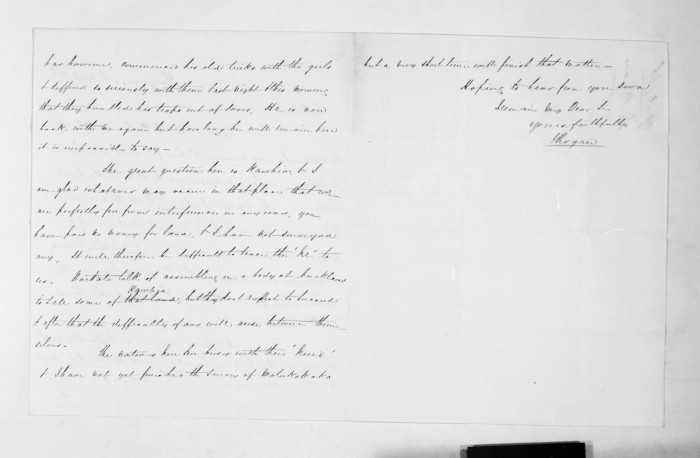 has however, commenced his old tricks with the girls
& differed so seriously with them last night & this morning
that they bundled his traps out of doors. He is now
back with me again but how long he will remain here
it is impossible to say –
The great question here is Hawkins, & I
am glad whatever may occur in that place that we
are perfectly free from interference in any way, you
have paid no money for land, & I have not surveyed
any, it will therefore be difficult to trace the to
us. Waikato talk of assembling in a body at Auckland
to sell some of that land, but they don't expect to succeed
& after that the difficulties if any will, arise between them-
selves.
The natives here are busy with their
& I have not yet finished the survey of
but a very short time will finish that matter –
Hoping to hear from you soon
Remain My Dear Sir
Yours faithfully
Rogan